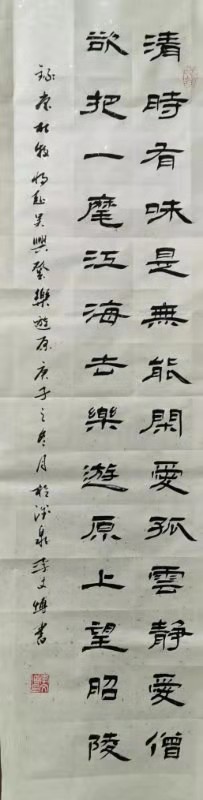 清時有味是無能閑愛孤雲靜愛僧
欲把一麾江海去樂遊原上望昭陵
錄唐杜牧將赴吳興登樂遊原庚子之冬月於酒泉李文博書